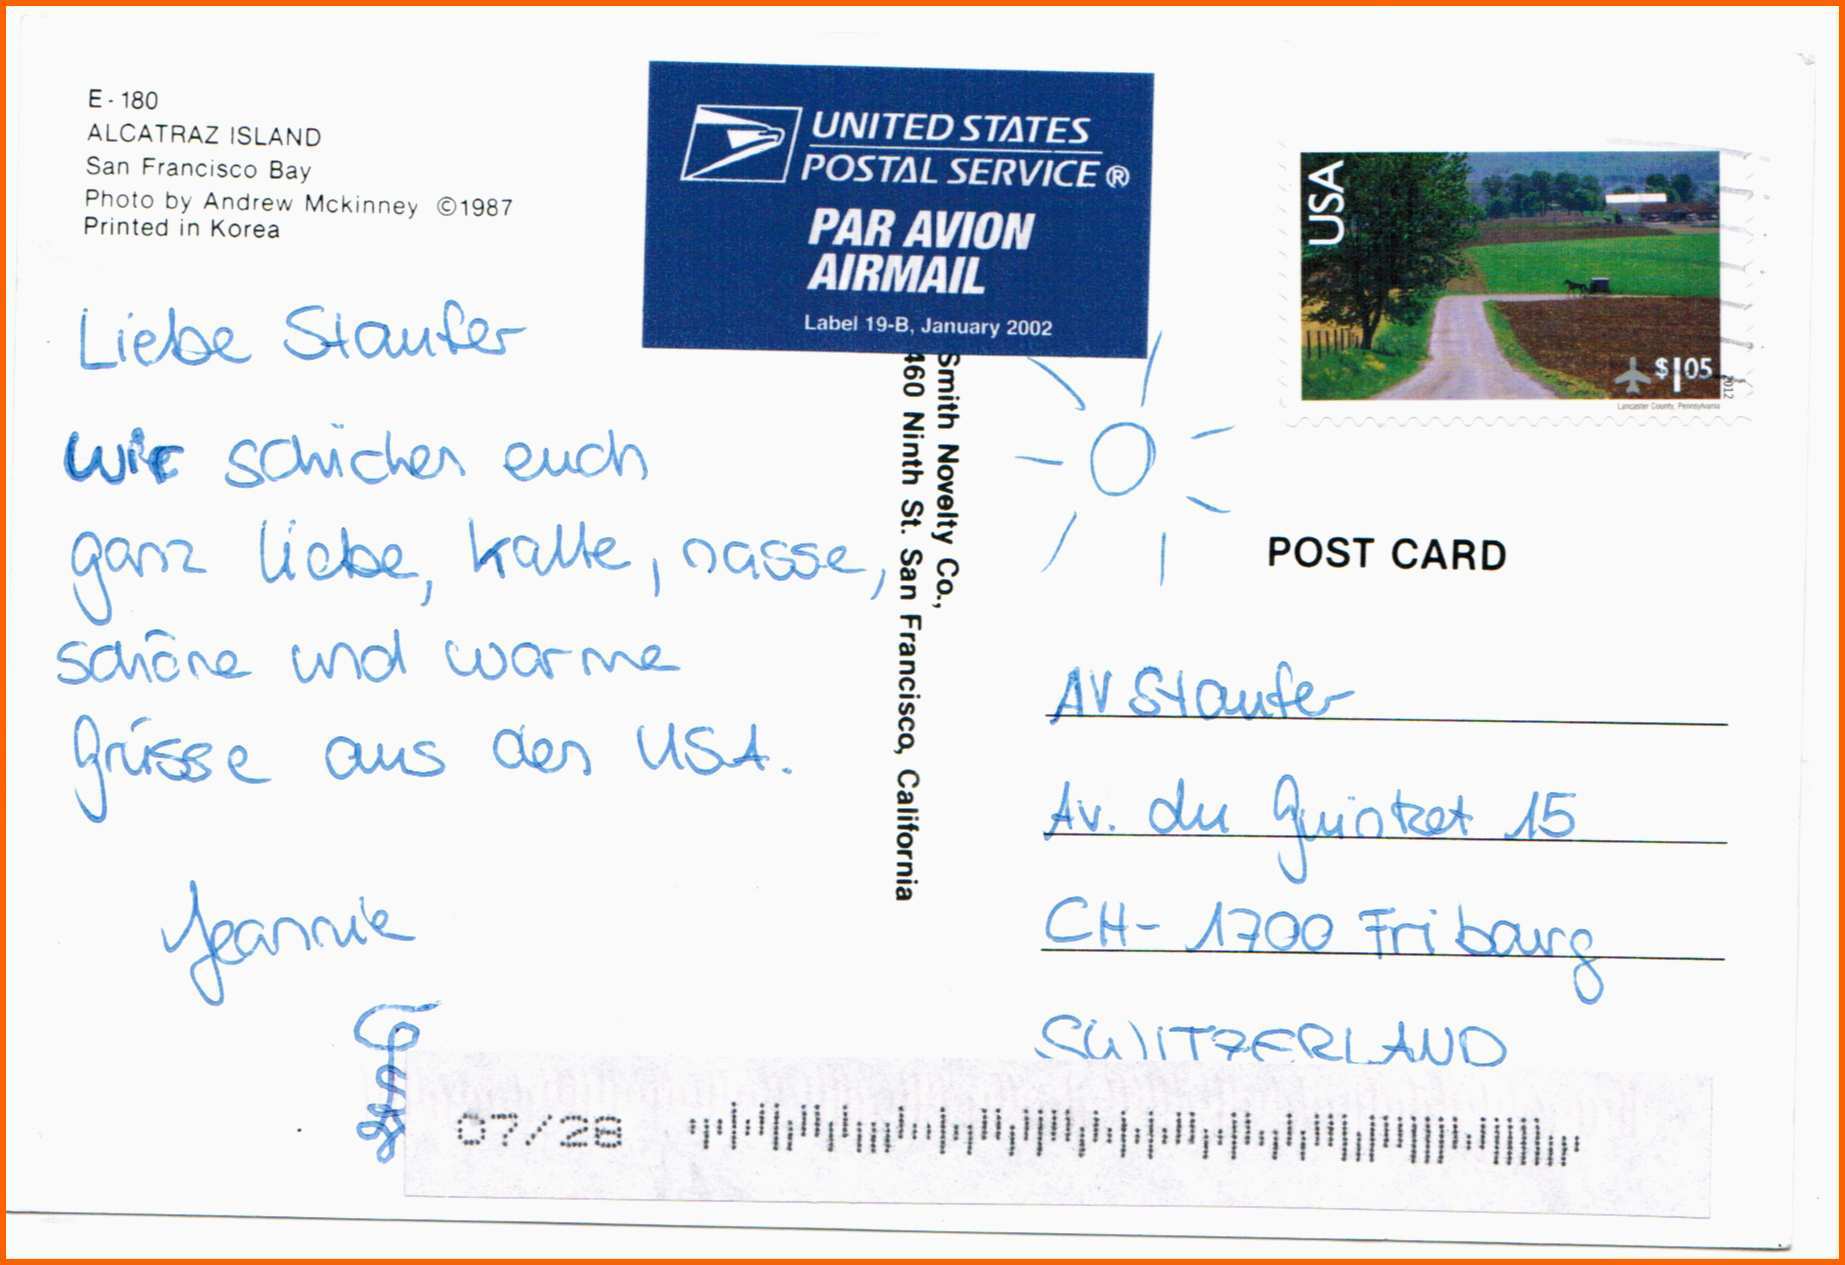 E - 180
ALCATRAZ ISLAND
San Francisco Bay
Photo by Andrew Mckinney ©1987
Printed in Korea
UNITED STATES
POSTAL SERVICE®
PAR AVION
AIRMAIL
Label 19-B, January 2002
USA
$1.05
2012
Lancaster County, Pennsylvania
Liebe Staufer
wir schicken euch
ganz liebe, kalte, nasse,
schöne und warme
Grüsse aus den USA.
Jeannie
Smith Novelty Co.,
460 Ninth St. San Francisco, California
POST CARD
AV Staufer
Av. du Guintzet 15
CH- 1700 Fribourg
SWITZERLAND
07/28